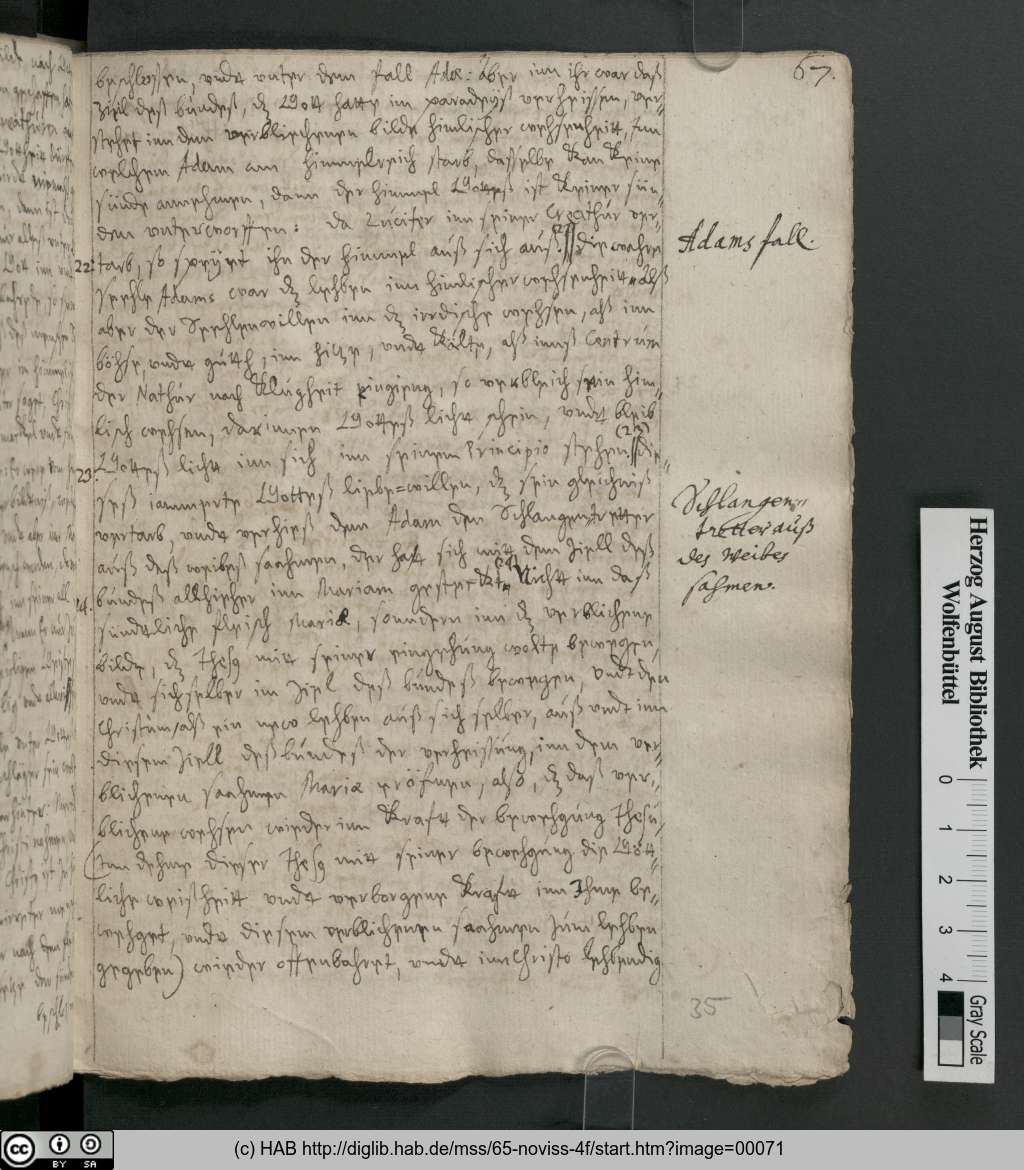 67.
beschlossen, undt unter dem fall Adæ: aber inn ihr war daß
Ziel deß bundeß, dz Gott hatte im paradeyß verheissen, ver-
stehet inn dem verblichenen bilde himlischer wehsenheitt, Inn
welchem Adam am himmelreich starb, dasselbe Kan Keine
sünde annehmen, dann der himmel Gotteß ist Keiner sün-
den unterworffen: Da Lucifer inn seiner Creathur ver-
22. tarb, so speyet ihn der himmel auß sich auß. die wahre
Seehle Adams war dz lehben inn himlischer wehsenheitt alß
aber der Seehlenwillen inn dz irrdische wehsen, alß inn
böhse undt gutth, inn hitze, undt Kälte, alß innß Centrum
der Nathur nach Klugheit eingieng, so verbleich sein him-
lisch wehsen, darinnen Gotteß licht schein, undt bleib
(23)
23. Gotteß licht inn sich inn seinem Principio stehen. die-
seß jammerte Gotteß liebe=willen, dz sein gleichniß
vertarb, undt verhieß dem Adam den Schlangentretter
auß deß weibeß saahmen, der hat sich mitt dem Ziell deß
24. bundeß allhieher inn Mariam gesteckt, Nicht inn daß
sündtliche fleisch Mariæ, sonndern inn dz verblichene
bilde, dz Jhesus mitt seiner eingehung wolte bewegen,
undt sichselber im Ziel deß bundeß bewegen, undt den
Christum, alß ein new lehben auß sich selber, auß undt inn
diesem Ziell deß bundeß der verheissung, inn dem ver-
blichenen saahmen Mariæ eröfnen, also, dz daß ver-
blichene wehsen wieder inn Kraft der bewehgung Jhesu,
(Inn dehme dieser Jhesus mitt seiner bewehgung die Gött-
liche weissheitt undt verborgene Kraft inn Ihme be-
wehget, undt diesem verblichenen saahmen zum lehben
gegeben) wieder offenbahret, undt inn Christo lehbendig
Adams fall.
Schlangen
tretter auß
des Weibes
sahmen.
35
Herzog August Bibliothek
Wolfenbüttel
0 1 2 3 4
Gray Scale
cc BY SA
(c) HAB http://diglib.hab.de/mss/65-noviss-4f/start.htm?image=00071